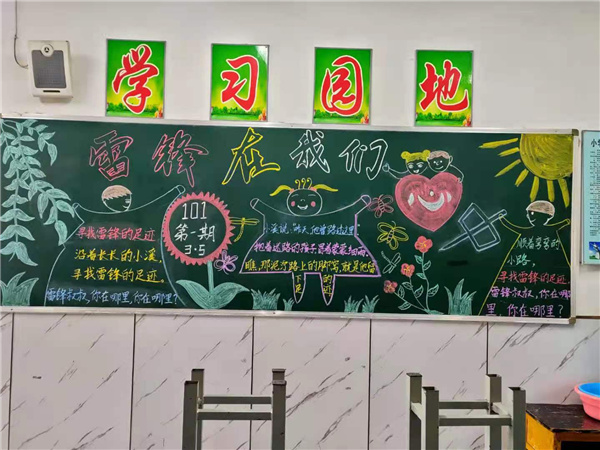 学习园地
雷锋在我们
寻找雷锋的足迹
沿着长长的小溪,
寻找雷锋的足迹。
雷锋叔叔,你在哪里,你在哪里?
101
第一期
3·5
小溪说:昨天,他曾路过这里
抱着迷路的孩子冒着蒙蒙细雨。
瞧,那泥泞路上的脚窝,就是他留
下的足迹
顺着弯弯的
小路,
寻找雷锋的足迹。
雷锋叔叔,你在哪
里,你在哪里?